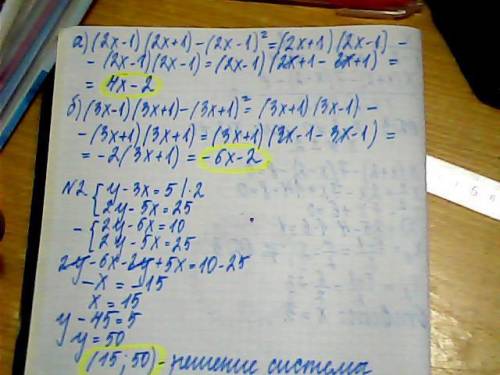 а) (2x-1)(2x+1)-(2x-1)²=(2x+1)(2x-1)-
-(2x-1)(2x-1)=(2x-1)(2x+1-2x+1)=
= 4x-2
б) (3x-1)(3x+1)-(3x+1)²=(3x+1)(3x-1)-
-(3x+1)(3x+1)=(3x+1)(3x-1-3x-1)=
=-2(3x+1)=-6x-2
№2 { y-3x=5 |·2
{ 2y-5x=25
- { 2y-6x=10
{ 2y-5x=25
2y-6x-2y+5x=10-25
-x=-15
x=15
y-45=5
y=50
(15; 50)-решение системы